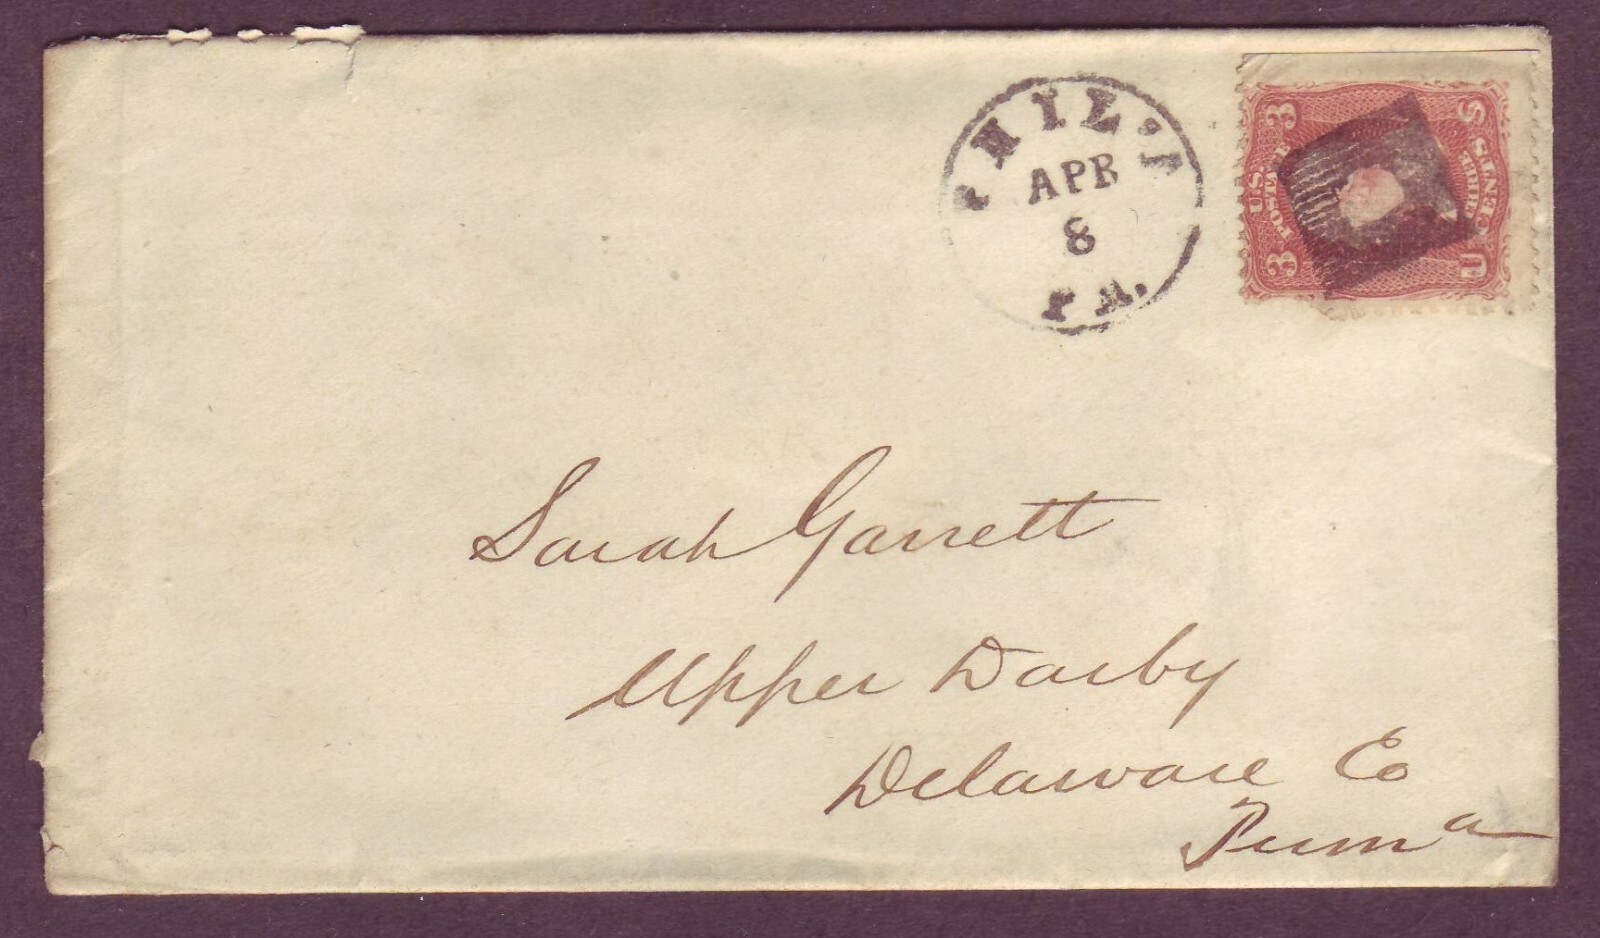 PHIL'A
APR
8
PA.
U.S. POSTAGE
3 3
U S
THREE CENTS
Sarah Garrett
Upper Darby
Delaware Co
Penna